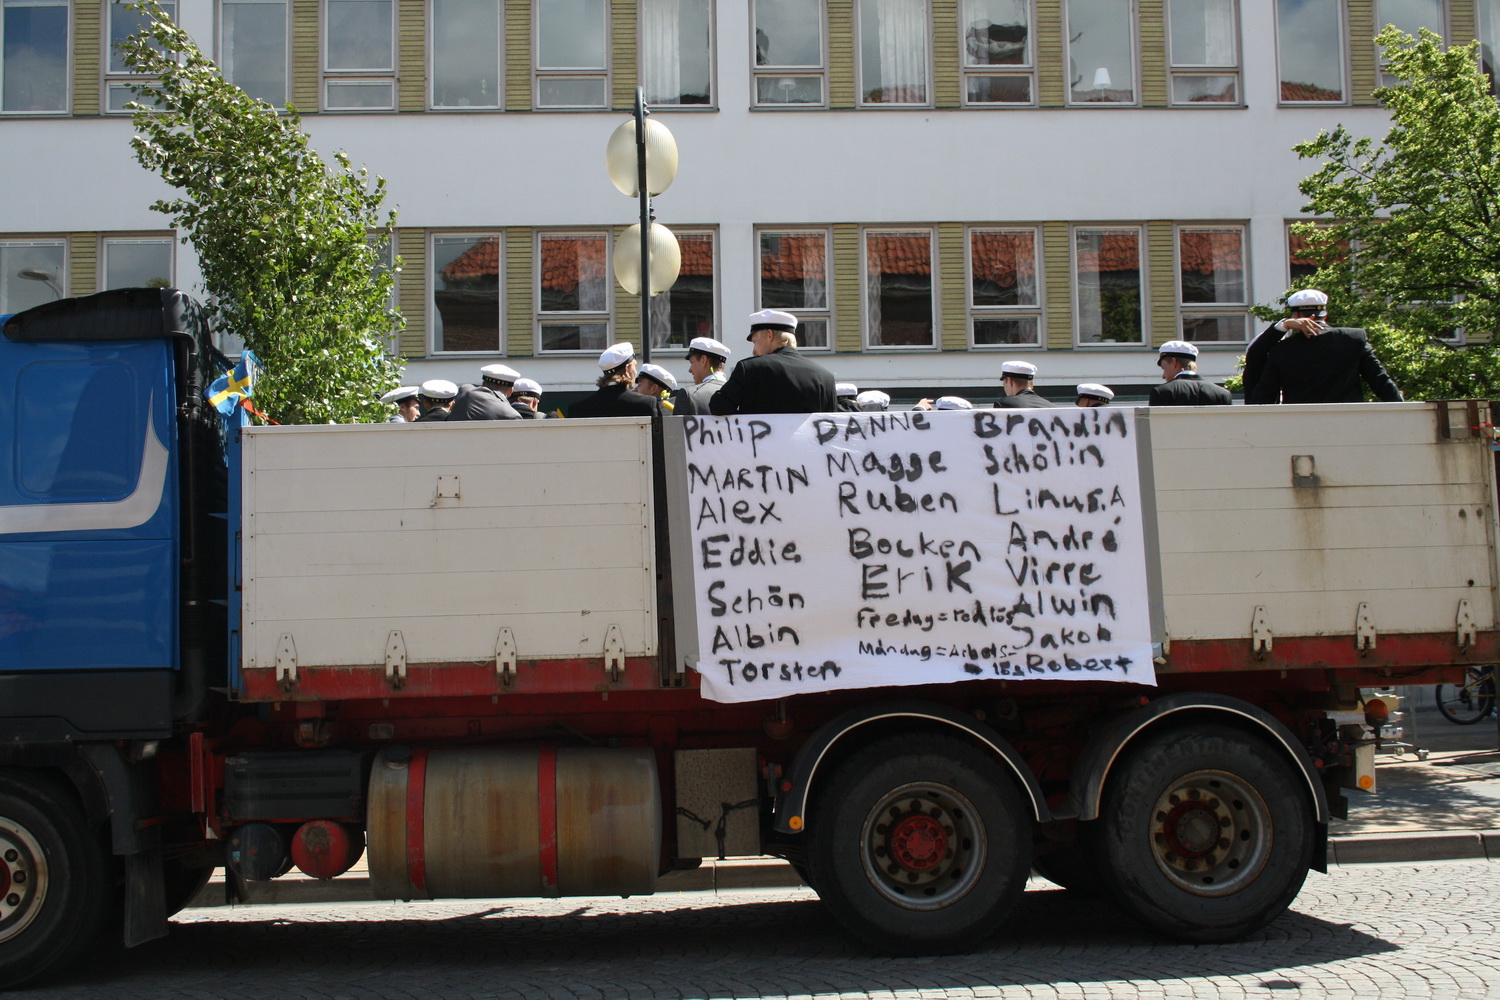 Philip
MARTIN
Alex
Eddie
Schön
Albin
Torsten
DANNe
Magge
Ruben
Bocken
Erik
Fredag=rödlös
Måndag=Arbets-
lös
Brandin
Schölin
Linus.A
André
Virre
Alwin
Jakob
Robert
CONTINENTAL